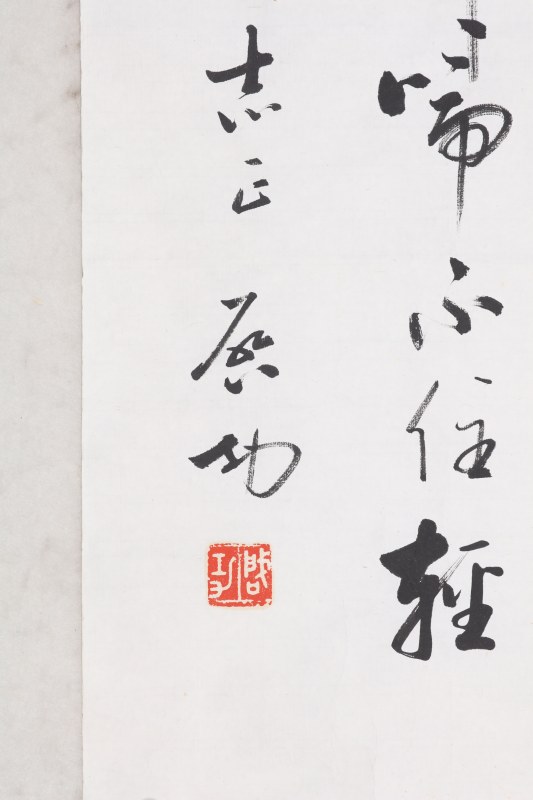 啼不住輕
志正 啟功
啟功